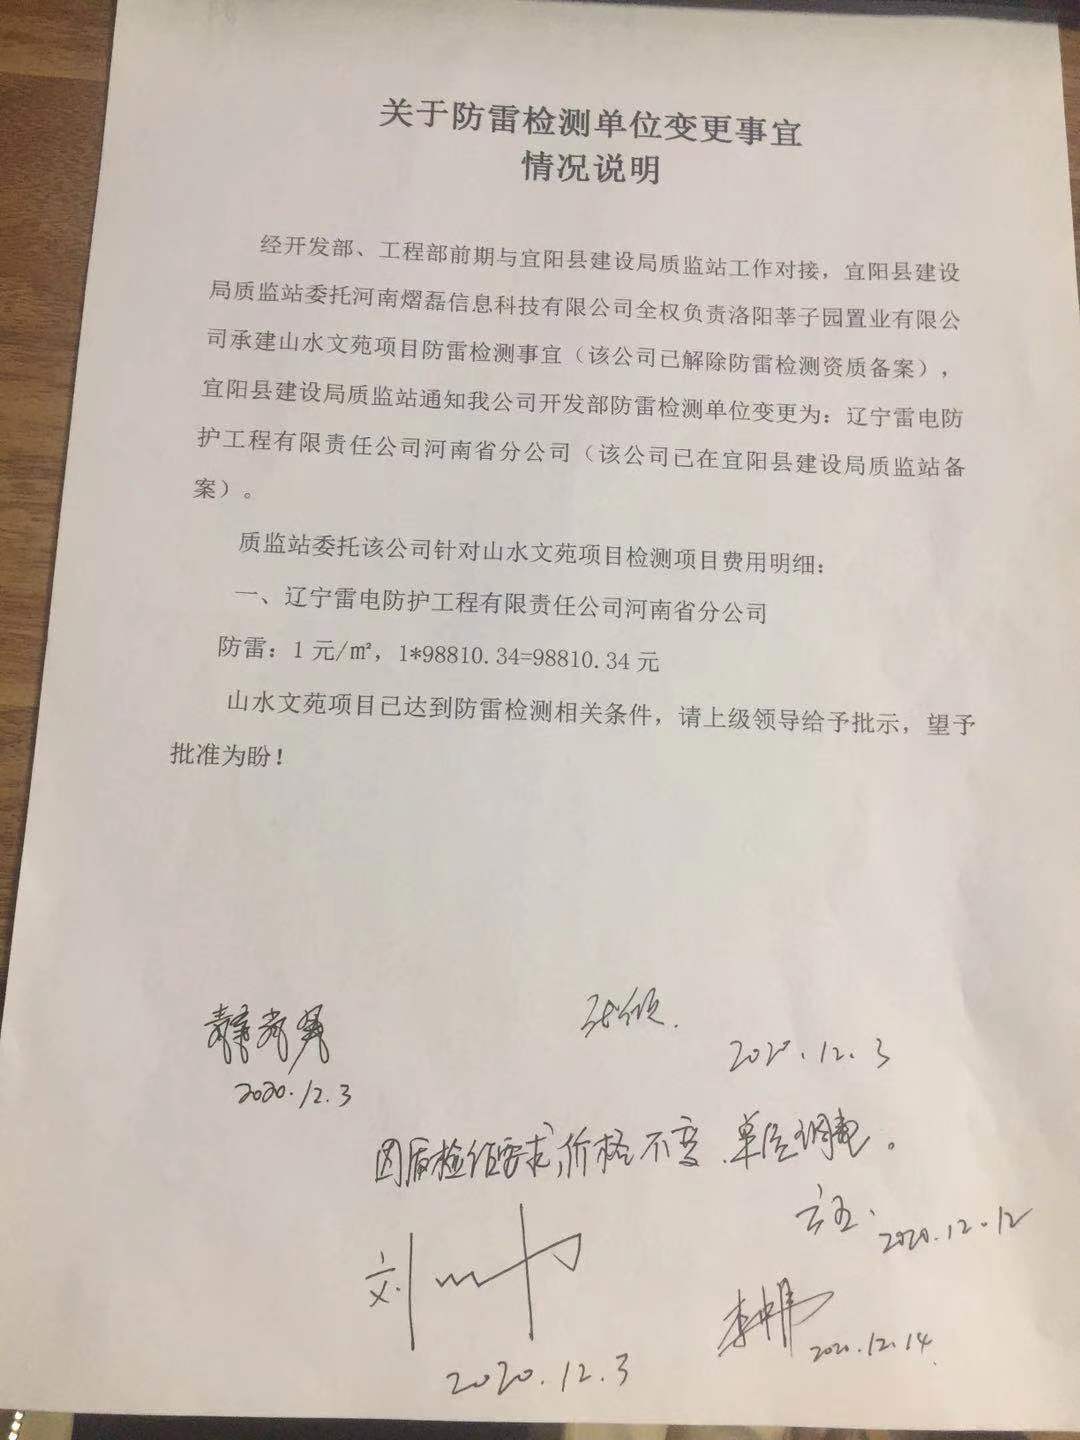 关于防雷检测单位变更事宜
情况说明
经开发部、工程部前期与宜阳县建设局质监站工作对接，宜阳县建设
局质监站委托河南熠磊信息科技有限公司全权负责洛阳莘子园置业有限公
司承建山水文苑项目防雷检测事宜（该公司已解除防雷检测资质备案），
宜阳县建设局质监站通知我公司开发部防雷检测单位变更为：辽宁雷电防
护工程有限责任公司河南省分公司（该公司已在宜阳县建设局质监站备
案）。
质监站委托该公司针对山水文苑项目检测项目费用明细：
一、辽宁雷电防护工程有限责任公司河南省分公司
防雷：1 元/㎡，1*98810.34=98810.34 元
山水文苑项目已达到防雷检测相关条件，请上级领导给予批示，望予
批准为盼！
2020.12.3
2020.12.3
因质检站要求，价格不变，单位调整。
2020.12.12
刘
2020.12.3
2020.12.14